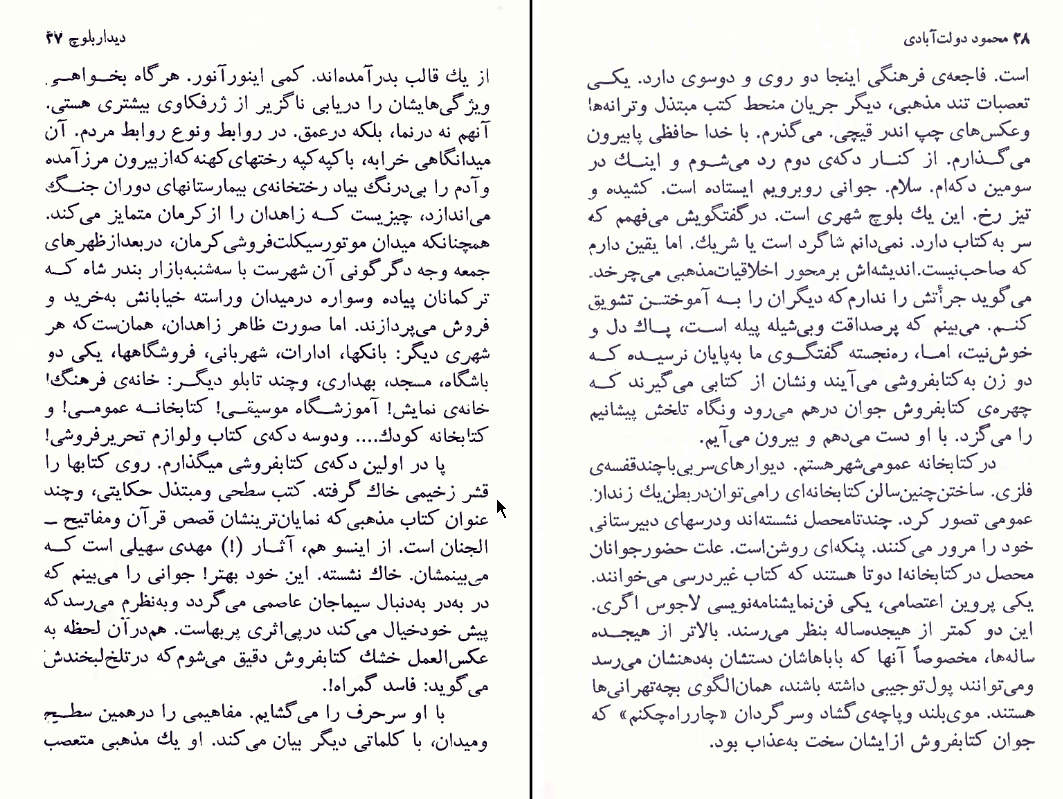 دیدار بلوچ ۲۷
از یك قالب بدرآمده‌اند. کمی اینورآنور. هرگاه بخــواهـی
ویژگی‌هایشان را دریابی ناگزیر از ژرفکاوی بیشتری هستی.
آنهم نه درنما، بلکه درعمق. در روابط ونوع روابط مردم. آن
میدانگاهی خرابه، باکپه‌کپه رختهای‌کهنه‌که‌ازبیرون مرزآمده
وآدم را بی‌درنگ بیاد رختخانه‌ی بیمارستانهای دوران جنــگ
می‌اندازد، چیزیست کــه زاهدان را از کرمان متمایز می‌کند.
همچنانکه میدان موتورسیکلت‌فروشی‌کرمان، دربعدازظهرهای
جمعه وجه دگرگونی آن شهرست با سه‌شنبه‌بازار بندر شاه کــه
ترکمانان پیاده وسواره درمیدان وراسته خیابانش به‌خرید و
فروش می‌پردازند. اما صورت ظاهر زاهدان، همان‌ست‌که هر
شهری دیگر: بانکها، ادارات، شهربانی، فروشگاهها، یکی دو
باشگاه، مسجد، بهداری، وچند تابلو دیگــر: خانه‌ی فرهنگ!
خانه‌ی نمایش! آموزشــگاه موسیقـی! کتابخانــه عمومـی! و
کتابخانه کودك.... ودوسه دکه‌ی کتاب ولوازم تحریرفروشی!
پا در اولین دکه‌ی کتابفروشی میگذارم. روی کتابها را
قشر زخیمی خاك گرفته. کتب سطحی ومبتذل حکایتی، وچند
عنوان کتاب مذهبی‌که نمایان‌ترینشان قصص قرآن ومفاتیح ــ
الجنان است. از اینسو هم، آثــار (!) مهدی سهیلی است کــه
می‌بینمشان. خاك نشسته. این خود بهتر! جوانی را می‌بینم که
در به‌در به‌دنبال سیماجان عاصمی می‌گردد وبه‌نظرم می‌رسدکه
پیش خودخیال می‌کند درپی‌اثری پربهاست. هم‌درآن لحظه به
عکس‌العمل خشك کتابفروش دقیق می‌شوم‌که درتلخ‌لبخندش
می‌گوید: فاسد گمراه!.
با او سرحرف را می‌گشایم. مفاهیمی را درهمین سطــح
ومیدان، با کلماتی دیگر بیان می‌کند. او یك مذهبی متعصب
۲۸ محمود دولت‌آبادی
است. فاجعه‌ی فرهنگی اینجا دو روی و دوسوی دارد. یکــی
تعصبات تند مذهبی، دیگر جریان منحط کتب مبتذل وترانه‌ها
وعکس‌های چپ اندر قیچی. می‌گذرم. با خدا حافظی پابیرون
می‌گــذارم. از کنــار دکه‌ی دوم رد می‌شوم و اینــك در
سومین دکه‌ام. سلام. جوانی روبرویم ایستاده است. کشیده و
تیز رخ. این یك بلوچ شهری است. درگفتگویش می‌فهمم که
سر به‌کتاب دارد. نمی‌دانم شاگرد است یا شریك. اما یقین دارم
که صاحب‌نیست.اندیشه‌اش برمحور اخلاقیات‌مذهبی می‌چرخد.
می‌گوید جرأتش را ندارم‌که دیگران را بــه آموختــن تشویق
کنــم. می‌بینم که پرصداقت وبی‌شیله پیله اســت، پــاك دل و
خوش‌نیت، امــا، ره‌نجسته گفتگــوی ما به‌پایان نرسیــده کــه
دو زن به‌کتابفروشی می‌آیند ونشان از کتابی می‌گیرند کــه
چهره‌ی کتابفروش جوان درهم می‌رود ونگاه تلخش پیشانیم
را می‌گزد. با او دست می‌دهم و بیرون می‌آیم.
درکتابخانه عمومی‌شهرهستم. دیوارهای‌سربی‌باچندقفسه‌ی
فلزی. ساختن‌چنین‌سالن‌کتابخانه‌ای رامی‌توان‌دربطن‌یك زندان
عمومی تصور کرد. چندتامحصل نشسته‌اند ودرسهای دبیرستانی
خود را مرور می‌کنند. پنکه‌ای روشن‌است. علت حضورجوانان
محصل درکتابخانه! دوتا هستند که کتاب غیردرسی می‌خوانند.
یکی پروین اعتصامی، یکی فن‌نمایشنامه‌نویسی لاجوس اگری.
این دو کمتر از هیجده‌ساله بنظر می‌رسند. بالاتر از هیجــده
ساله‌ها، مخصوصاً آنها که باباهاشان دستشان به‌دهنشان می‌رسد
ومی‌توانند پول‌توجیبی داشته باشند، همان‌الگوی بچه‌تهرانی‌ها
هستند. موی‌بلند وپاچه‌ی‌گشاد وسرگردان «چارراه‌چکنم» که
جوان کتابفروش ازایشان سخت به‌عذاب بود.